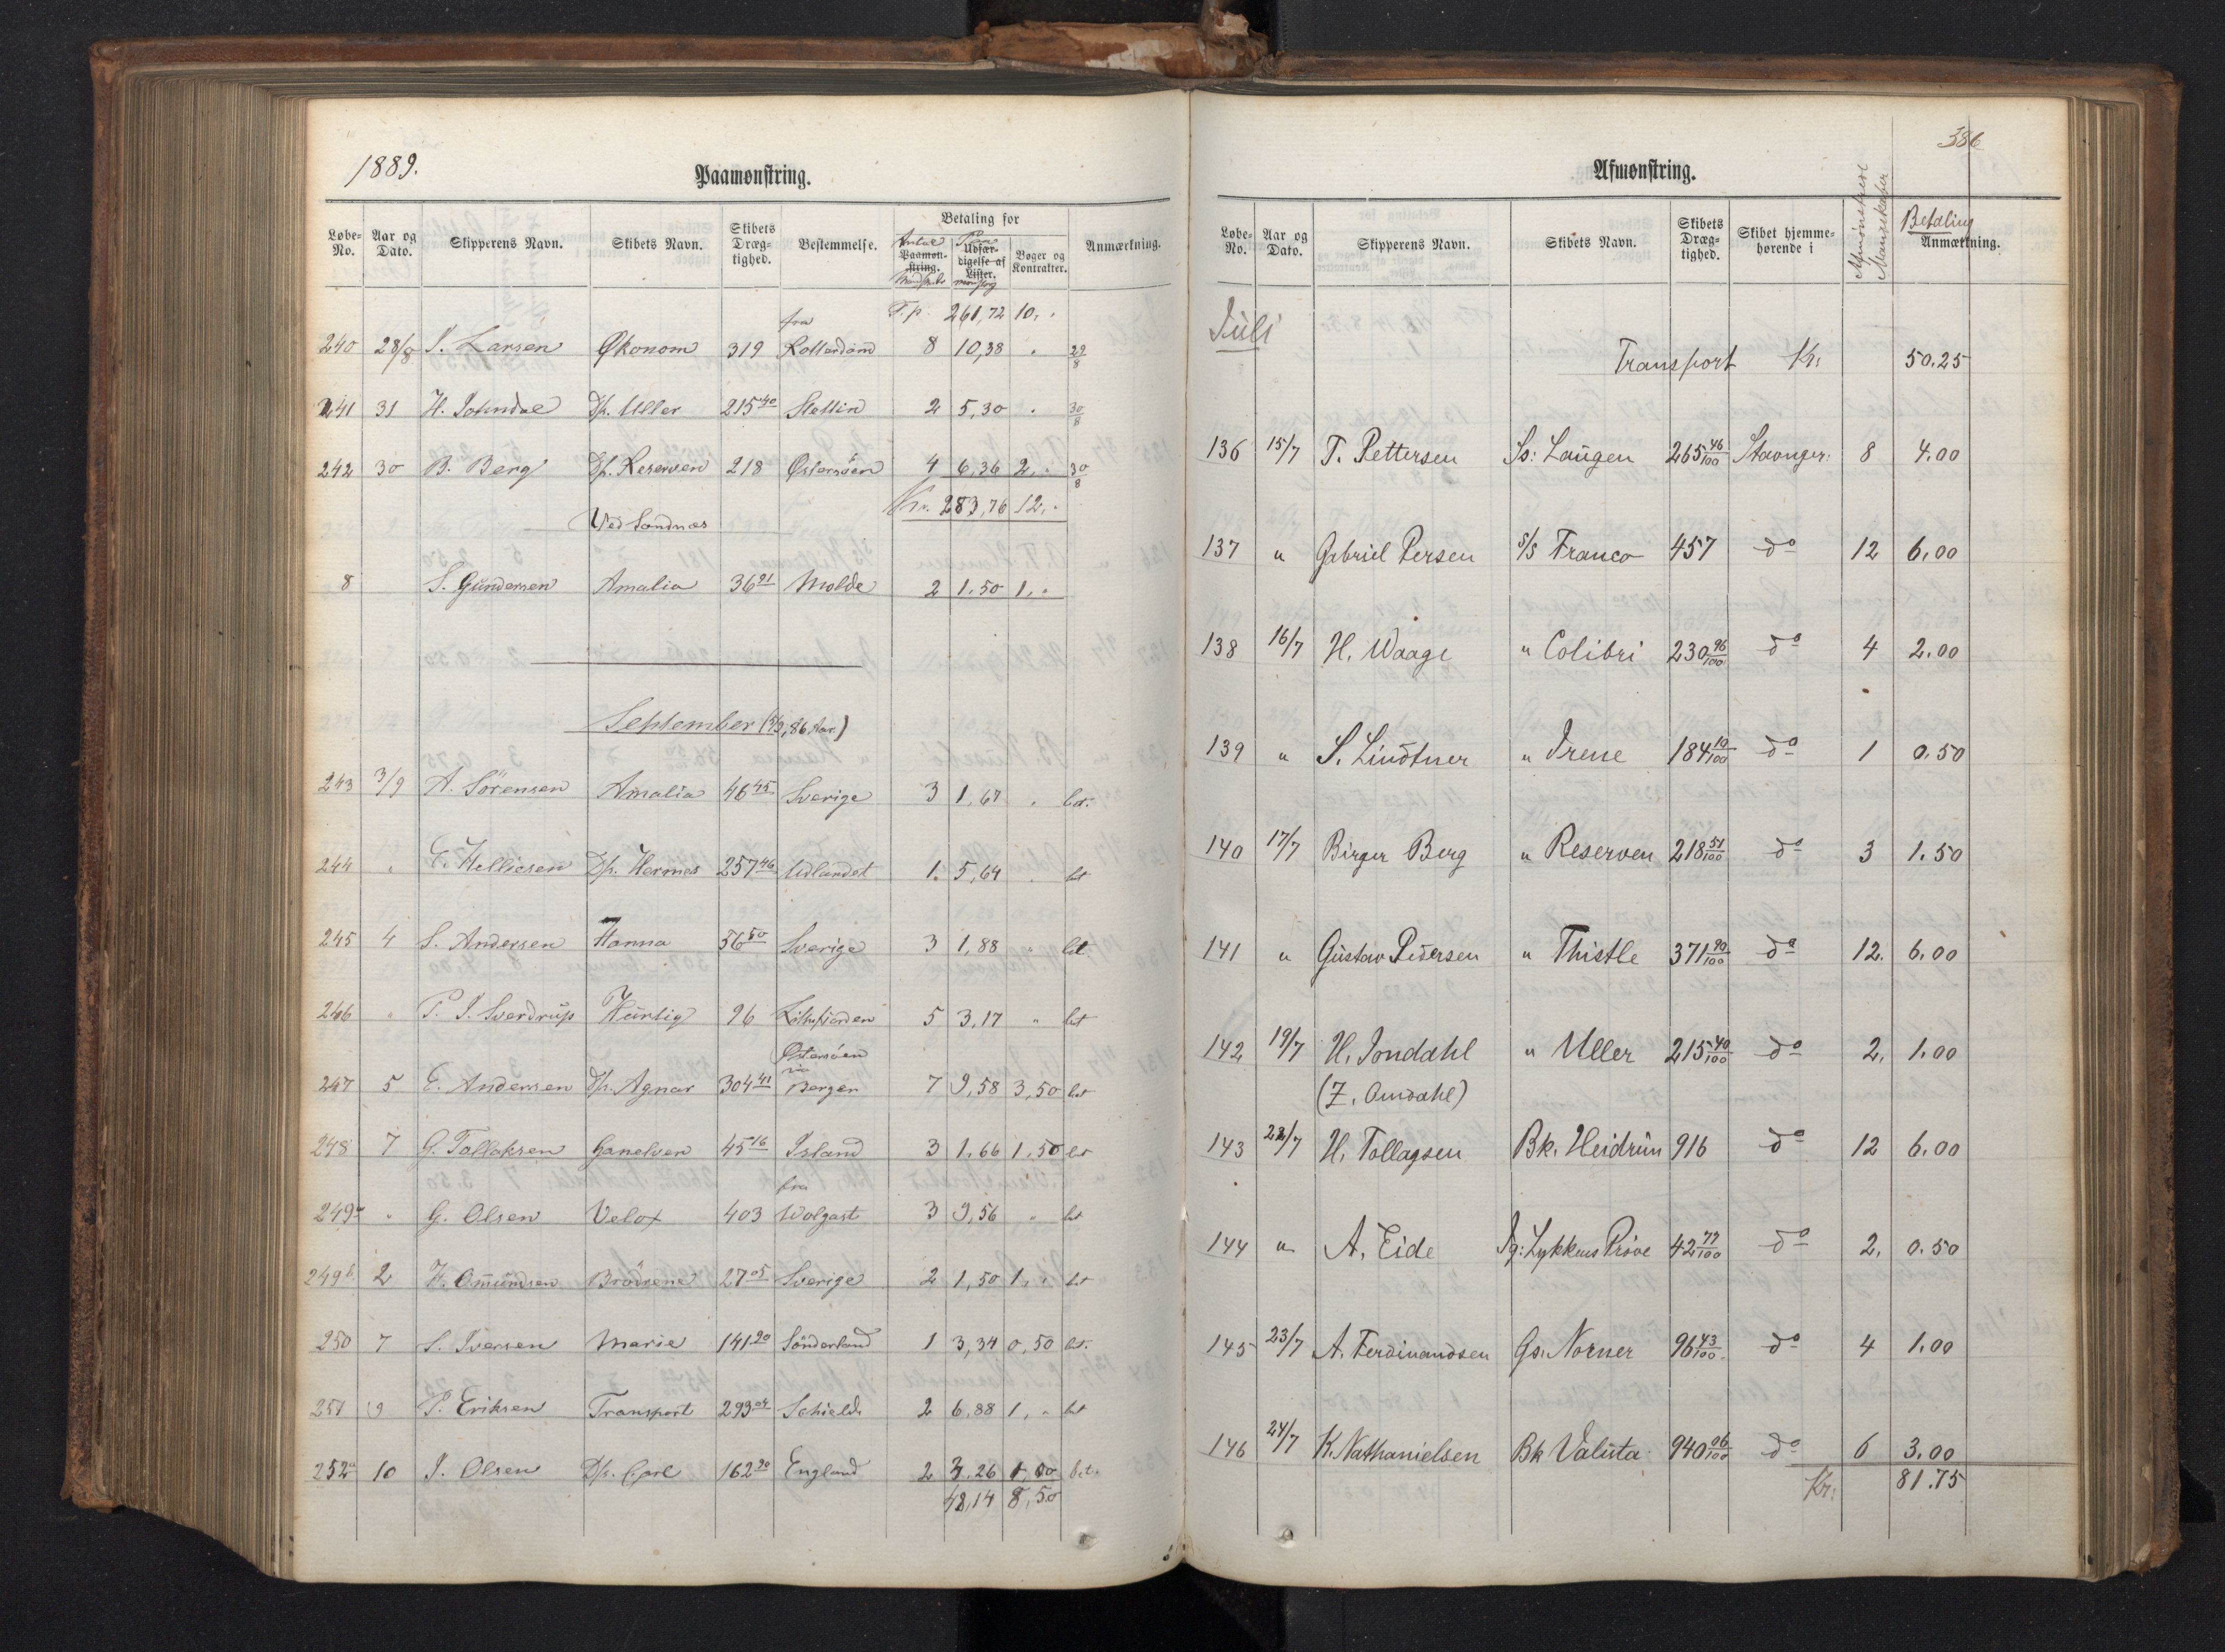 1889.
Paamønstring.
Løbe-No. Aar og Dato. Skipperens Navn. Skibets Navn. Skibets Dræg-tighed. Bestemmelse. Betaling for Antal Paamøn-string. Mandskab Udfær-digelse af Lister. Bøger og Kontrakter. Anmærkning.
T. p. 261,72 10, "
240 28/8 S. Larsen Økonom 319 fra Rotterdam 8 10,38 " 29/8
241 31 H. Johndal Dp. Uller 215 40 Stettin 2 5,30 " 30/8
242 30 B. Berg Dp. Reserven 218 Østersøen 4 6,36 2, " 30/8
Kr. 283,76 12, "
Ved Sandnæs
8 S. Gundersen Amalia 36 21 Molde 2 1.50 1, "
September
243 3/9 A. Sörensen Amalia 46 45 Sverige 3 1,67 " bet.
244 " E. Helliesen Dp. Hermes 257 46 Udlandet 1. 5,64 " bet
245 4 S. Andersen Hanna 56 50 Sverige 3 1,88 " bet
246 " P. J. Sverdrup Hurtig 96 Limfjorden 5 3,17 " bet
247 5 E. Andersen Dp. Agnar 304 41 Østersøen via Bergen 7 9,58 3,50 bet
248 7 G. Tallaksen Ganelven 45 16 Island 3 1.66 1.50 bet
249a " G. Olsen Velox 403 fra Wolgast 3 9,56 " bet
249b 2 H. Omundsen Brödrene 27 05 Sverige 2 1,50 1, " bet
250 7 S. Iversen Marie 141 20 Sönderland 1 3,34 0,50 bet.
251 9 P. Eriksen Transport 293 04 Schields 2 6.88 1, " bet
252a 10 J. Olsen Dp. Carl 162 90 England 2 3.26 1,00 bet.
48,14 8,50
386
Afmønstring.
Løbe-No. Aar og Dato. Skipperens Navn. Skibets Navn. Skibets Dræg-tighed. Skibet hjemme-hørende i Afmønstrede Mandskaber Betaling Anmærkning.
Juli
Transport Kr. 50.25
136 15/7 T. Pettersen Ss: Laugen 265 46/100 Stavanger: 8 4.00
137 " Gabriel Persen S/S Franco 457 do 12 6,00
138 16/7 H. Waage " Colibri 230 96/100 do 4 2.00
139 " S. Lindtner " Irene 184 10/100 do 1 0.50
140 17/7 Birger Berg " Reserven 218 51/100 do 3 1.50
141 " Gustav Pedersen " Thistle 371 90/100 do 12. 6.00
142 19/7 H. Jondahl " Uller 215 40/100 do 2, 1.00
(Z. Omdahl)
143 22/7 H. Tollagsen Bk. Heidrun 916 do 12 6.00
144 " A. Eide Jg: Lykkens Prøve 42 77/100 do 2, 0.50
145 23/7 A. Ferdinandsen Gs. Norner 96 43/100 do 4 1.00
146 24/7 K. Nathanielsen Bk Valuta 940 06/100 do 6 3.00
Kr: 81.75